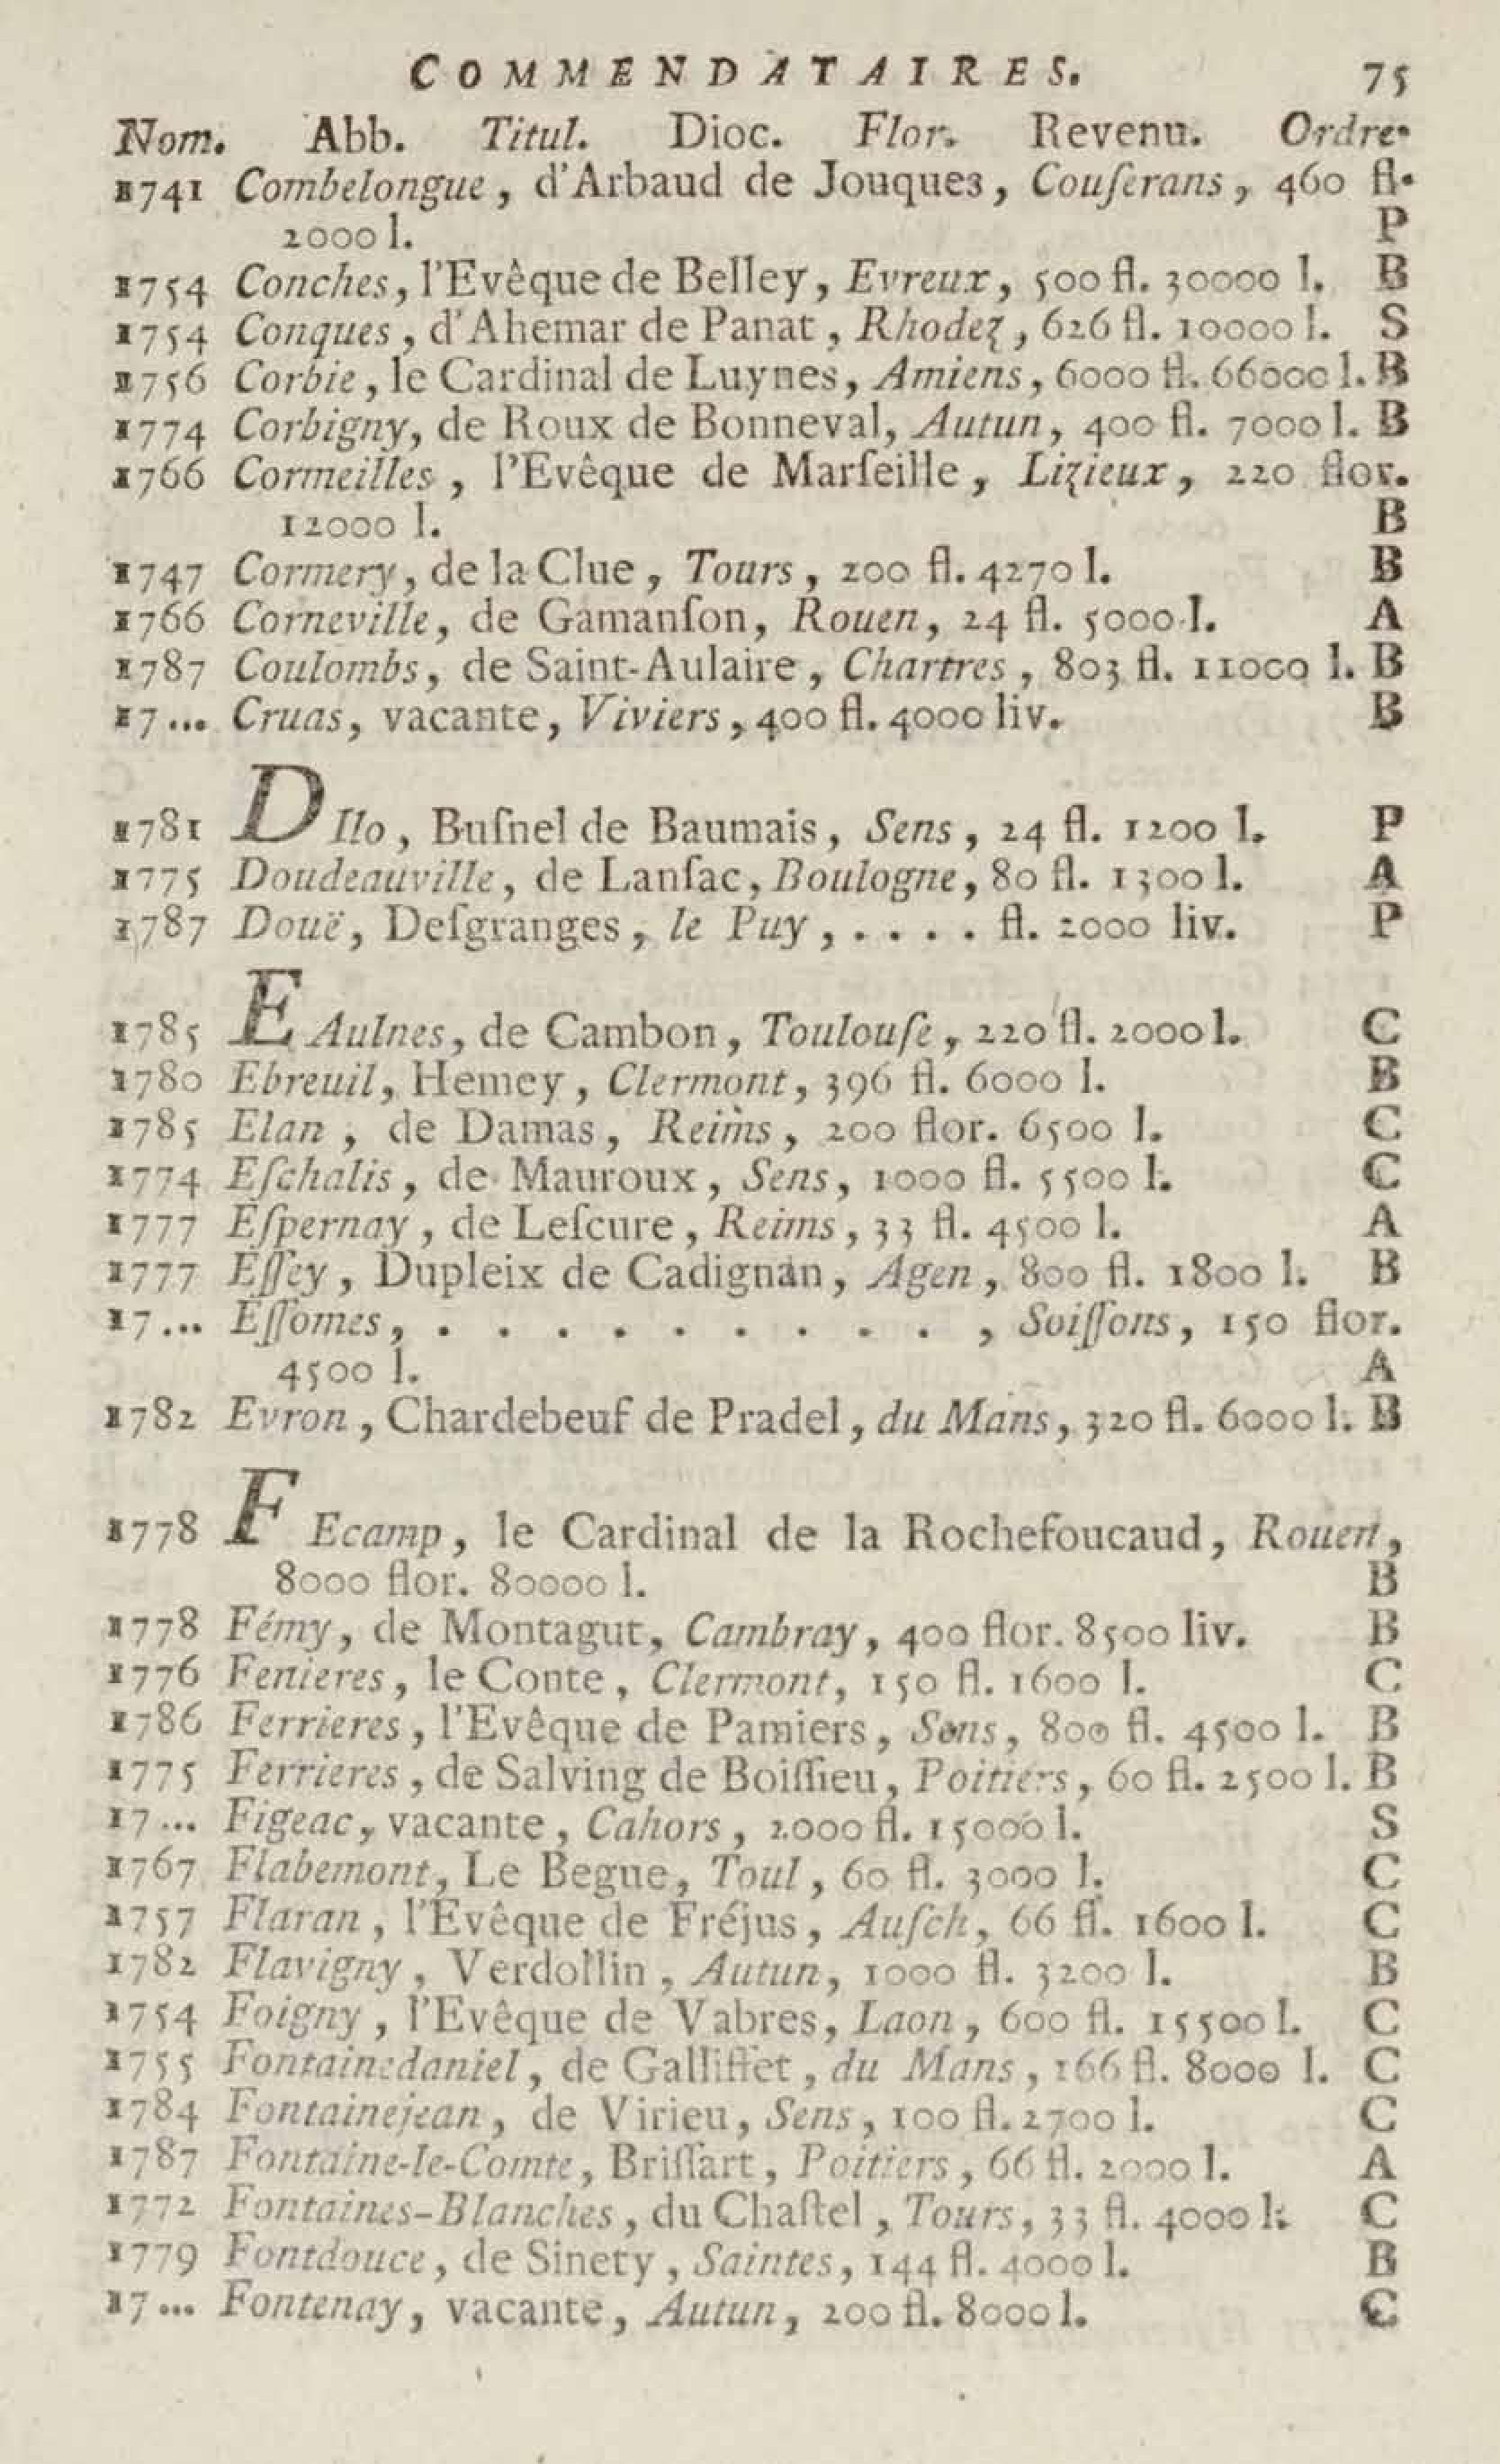 COMMENDATAIRES. 75
Nom. Abb. Titul. Dioc. Flor. Revenu. Ordre.
1741 Combelongue, d'Arbaud de Jouques, Couſerans, 460 fl.
2000 l. P
1754 Conches, l'Evêque de Belley, Evreux, 500 fl. 30000 l. B
1754 Conques, d'Ahemar de Panat, Rhodez, 626 fl. 10000 l. S
1756 Corbie, le Cardinal de Luynes, Amiens, 6000 fl. 66000 l. B
1774 Corbigny, de Roux de Bonneval, Autun, 400 fl. 7000 l. B
1766 Cormeilles, l'Evêque de Marſeille, Lizieux, 220 flor.
12000 l. B
1747 Cormery, de la Clue, Tours, 200 fl. 4270 l. B
1766 Corneville, de Gamanſon, Rouen, 24 fl. 5000 l. A
1787 Coulombs, de Saint-Aulaire, Chartres, 803 fl. 11000 l. B
17... Cruas, vacante, Viviers, 400 fl. 4000 liv. B
1781 DIlo, Buſnel de Baumais, Sens, 24 fl. 1200 l. P
1775 Doudeauville, de Lanſac, Boulogne, 80 fl. 1300 l. A
1787 Douë, Deſgranges, le Puy, . . . . fl. 2000 liv. P
1785 EAulnes, de Cambon, Toulouſe, 220 fl. 2000 l. C
1780 Ebreuil, Hemey, Clermont, 396 fl. 6000 l. B
1785 Elan, de Damas, Reims, 200 flor. 6500 l. C
1774 Eſchalis, de Mauroux, Sens, 1000 fl. 5500 l. C
1777 Eſpernay, de Leſcure, Reims, 33 fl. 4500 l. A
1777 Eſſey, Dupleix de Cadignan, Agen, 800 fl. 1800 l. B
17... Eſſomes, . . . . . . . . . . , Soiſſons, 150 flor.
4500 l. A
1782 Evron, Chardebeuf de Pradel, du Mans, 320 fl. 6000 l. B
1778 FEcamp, le Cardinal de la Rochefoucaud, Rouen,
8000 flor. 80000 l. B
1778 Fémy, de Montagut, Cambray, 400 flor. 8500 liv. B
1776 Fenieres, le Conte, Clermont, 150 fl. 1600 l. C
1786 Ferrieres, l'Evêque de Pamiers, Sens, 800 fl. 4500 l. B
1775 Ferrieres, de Salving de Boiſſieu, Poitiers, 60 fl. 2500 l. B
17... Figeac, vacante, Cahors, 2000 fl. 15000 l. S
1767 Flabemont, Le Begue, Toul, 60 fl. 3000 l. C
1757 Flaran, l'Evêque de Fréjus, Auſch, 66 fl. 1600 l. C
1782 Flavigny, Verdollin, Autun, 1000 fl. 3200 l. B
1754 Foigny, l'Evêque de Vabres, Laon, 600 fl. 15500 l. C
1755 Fontainedaniel, de Galliffet, du Mans, 166 fl. 8000 l. C
1784 Fontainejean, de Virieu, Sens, 100 fl. 2700 l. C
1787 Fontaine-le-Comte, Briſſart, Poitiers, 66 fl. 2000 l. A
1772 Fontaines-Blanches, du Chaſtel, Tours, 33 fl. 4000 l. C
1779 Fontdouce, de Sinety, Saintes, 144 fl. 4000 l. B
17... Fontenay, vacante, Autun, 200 fl. 8000 l. C